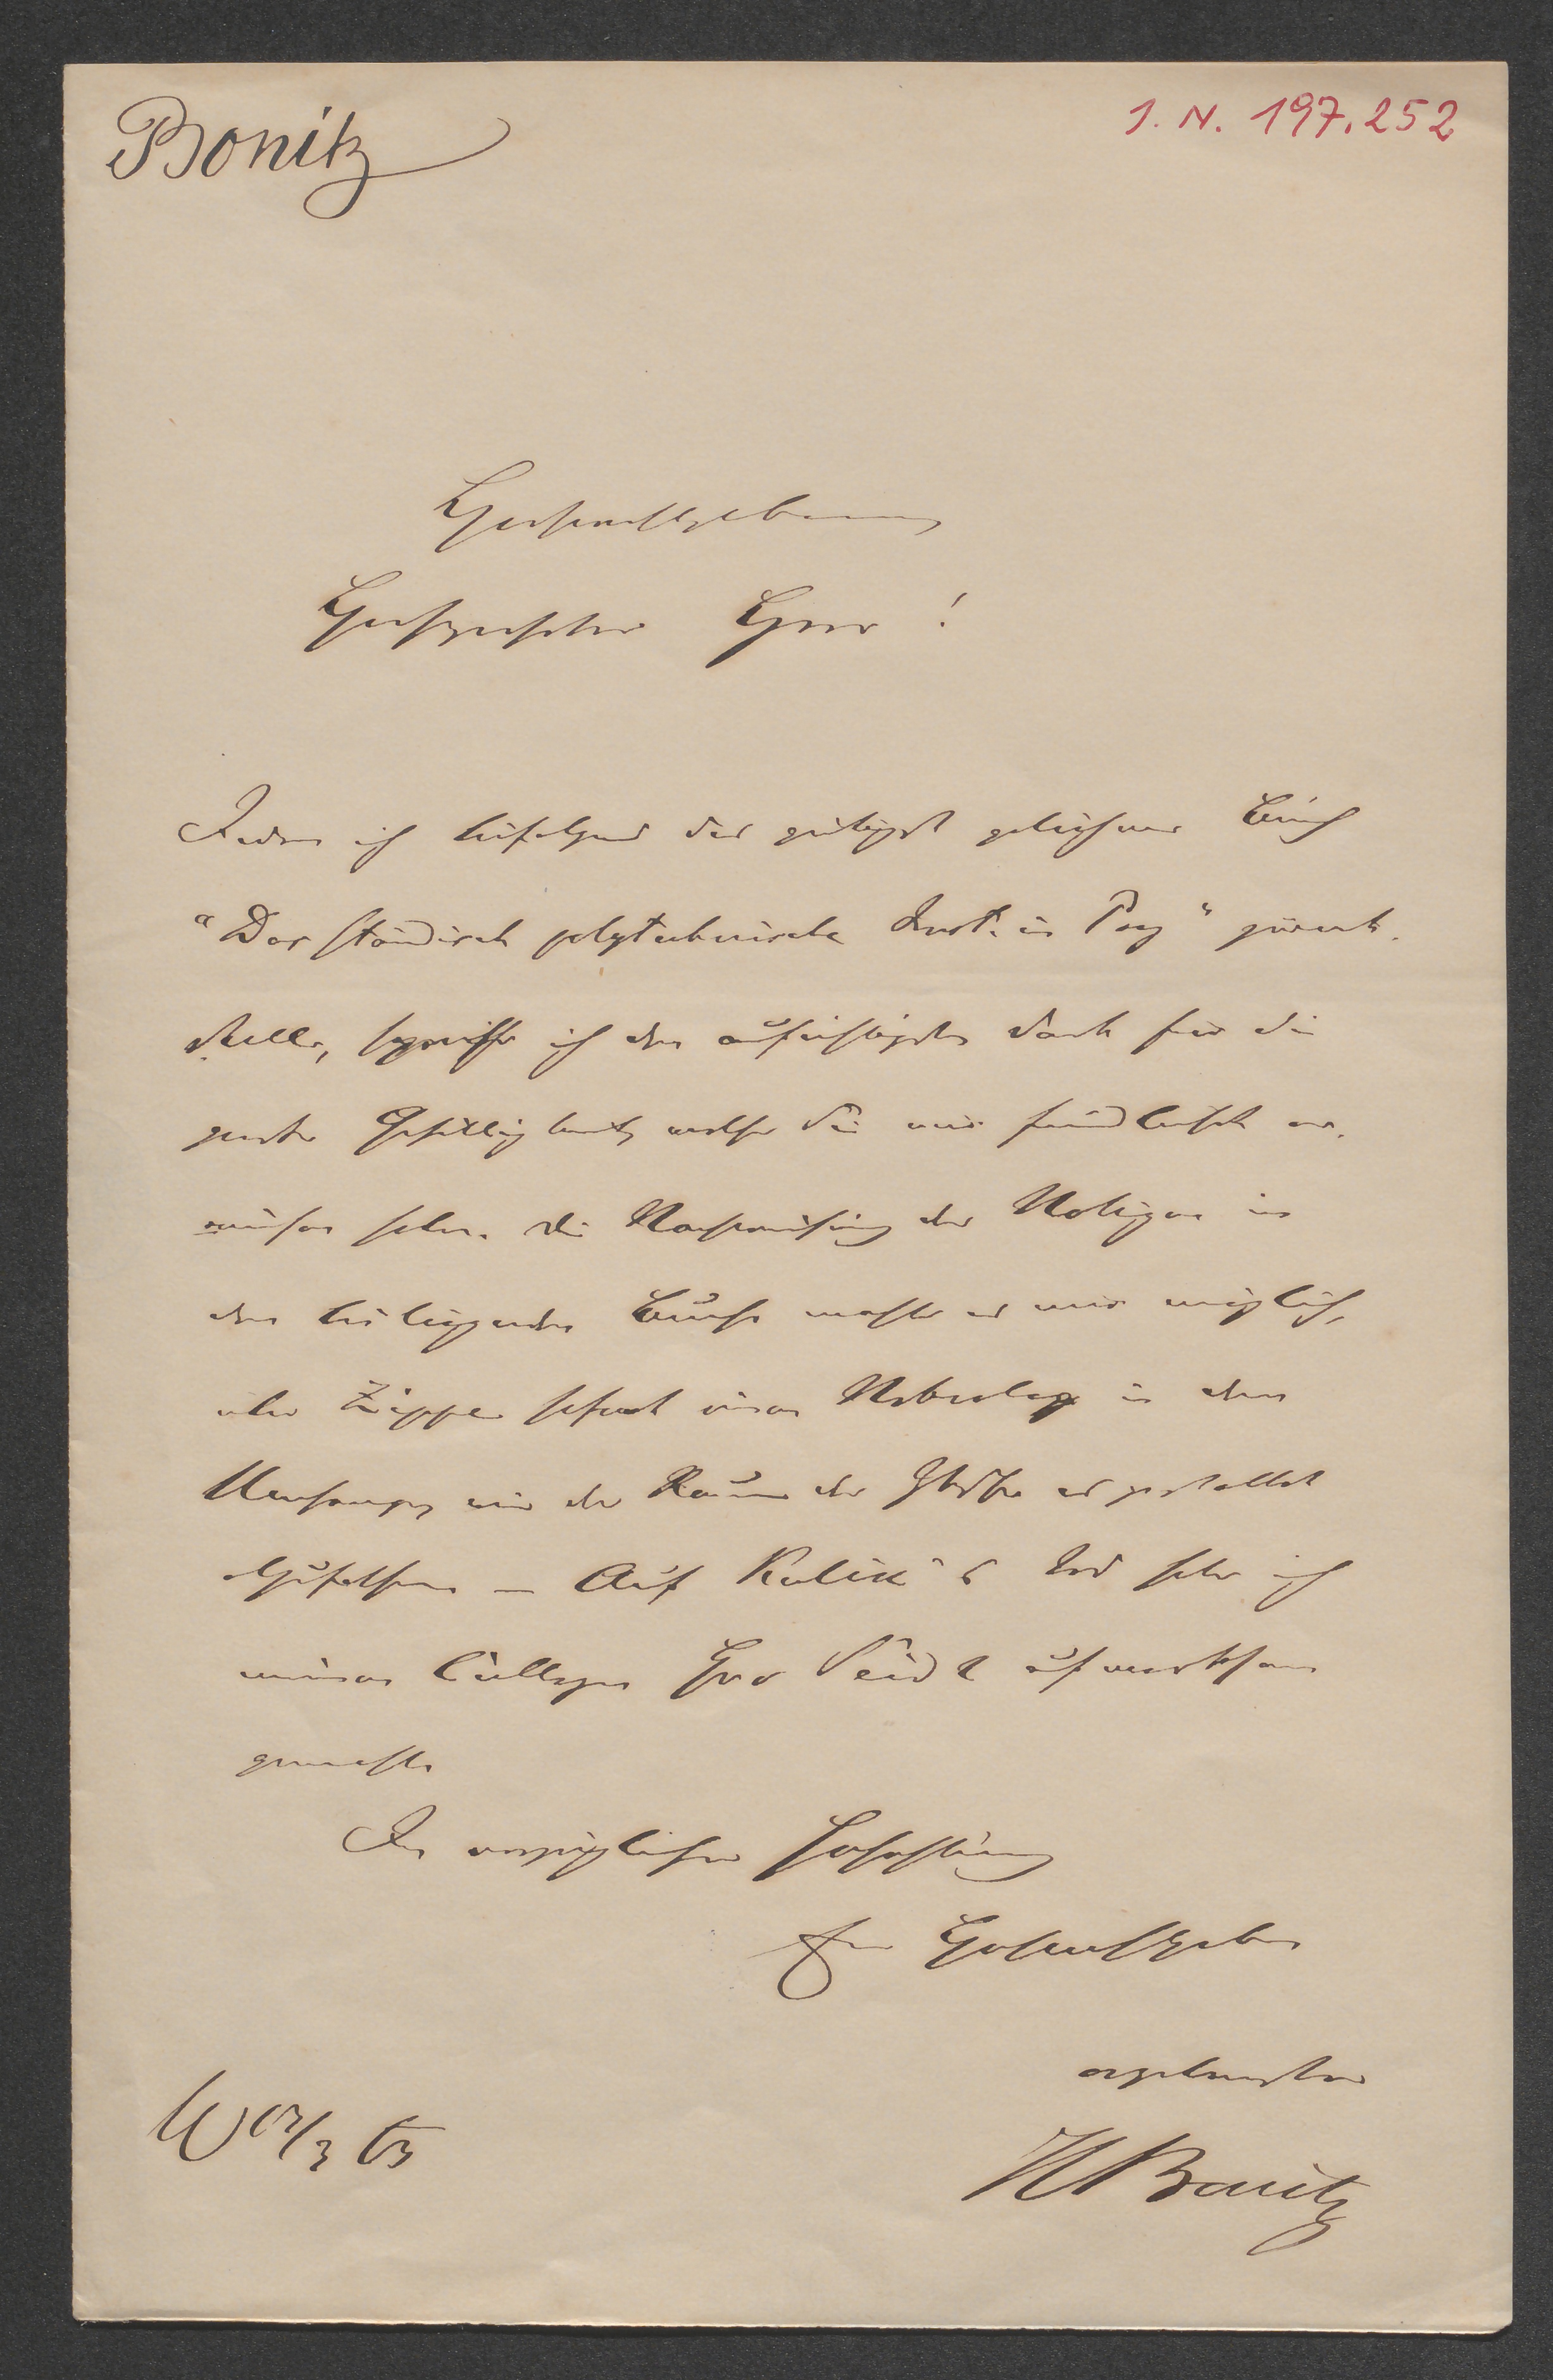 Bonitz
I. N. 197.252
Hochwohlgeborner
Hochgeehrter Herr!
Indem ich beifolgend das gütigst geliehene Buch
"Das ständisch polytechnische Inst. in Prag" zurück-
stelle, ich den aufrichtigsten Dank für die
große Gefälligkeit, welche Sie mir freundlichst er-
wiesen haben. Die Nachweisung der Notizen in
dem beiliegenden Buche machte es mir möglich,
über Zippe sofort einen Nekrolog in dem
Umfange, wie der Raum der es gestattet
abzufassen. – Auf Kulik's Tod habe ich
meinen Collegen Hrn Seidl aufmerksam
gemacht.
In vorzüglicher Hochachtung
Euer Hochwohlgeboren
ergebenster
W /3 63
H Bonitz